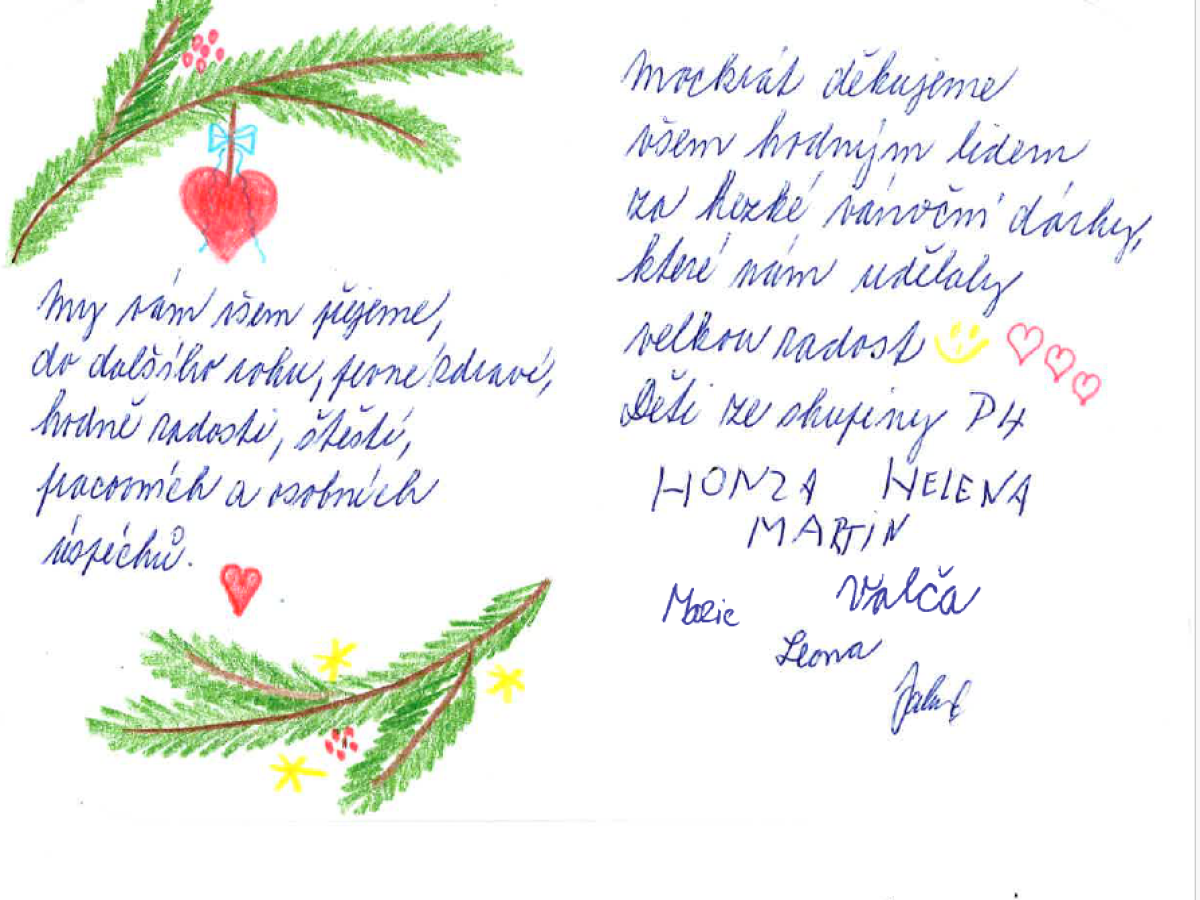 My vám všem přejeme,
do dalšího roku, pevné zdraví,
hodně radosti, štěstí,
pracovních a osobních
úspěchů.
Mockrát děkujeme
všem hodným lidem
za hezké vánoční dárky,
které nám udělaly
velkou radost
Děti ze skupiny P4
HONZA HELENA
MARTIN
Valča
Marie
Leona